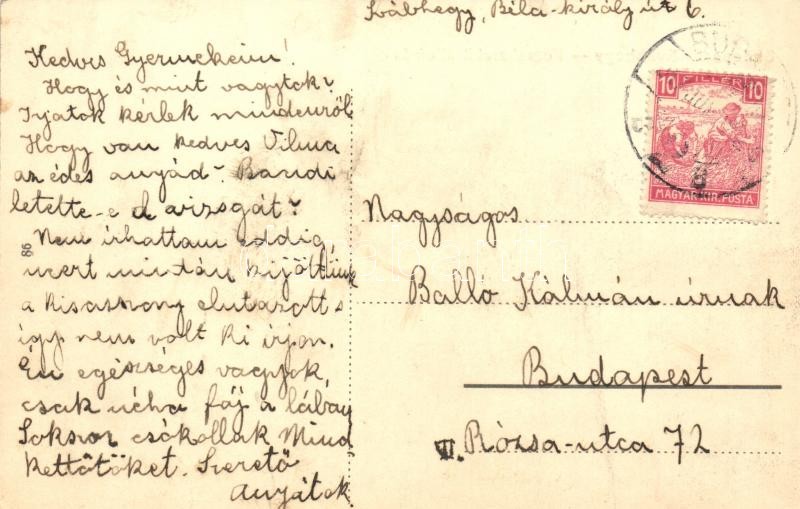 Svábhegy, Béla-király út 6.
Kedves Gyermekeim!
Hogy és mint vagytok?
Irjatok kérlek mindenről
Hogy van kedves Vilma
az édes anyád? Bandi
letette-e a vizsgát?
Nem írhattam eddig,
mert miután kijöttünk
a kisasszony elutazott s
így nem volt ki írjon.
Én egészséges vagyok,
csak néha fáj a lábam
Sokszor csókollak Mind
kettőtöket. Szerető
Anyátok
86
10 FILLÉR 10
MAGYAR KIR. POSTA
Nagyságos
Balló Kálmán úrnak
Budapest
VII. Rózsa-utca 72